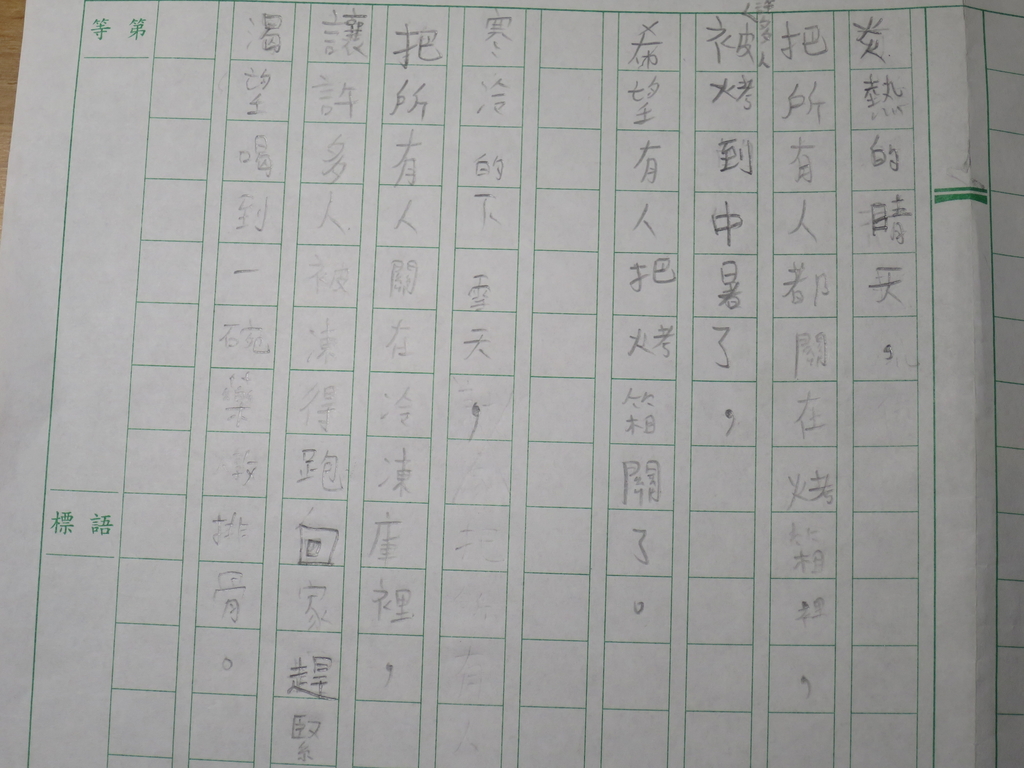 炎熱的晴天，
把所有人都關在烤箱裡，
被烤到中暑了，
希望有人把烤箱關了。
寒冷的下雪天，
把所有人關在冷凍庫裡，
讓許多人被凍得跑回家趕緊
渴望喝到一碗藥燉排骨。
等第
標語